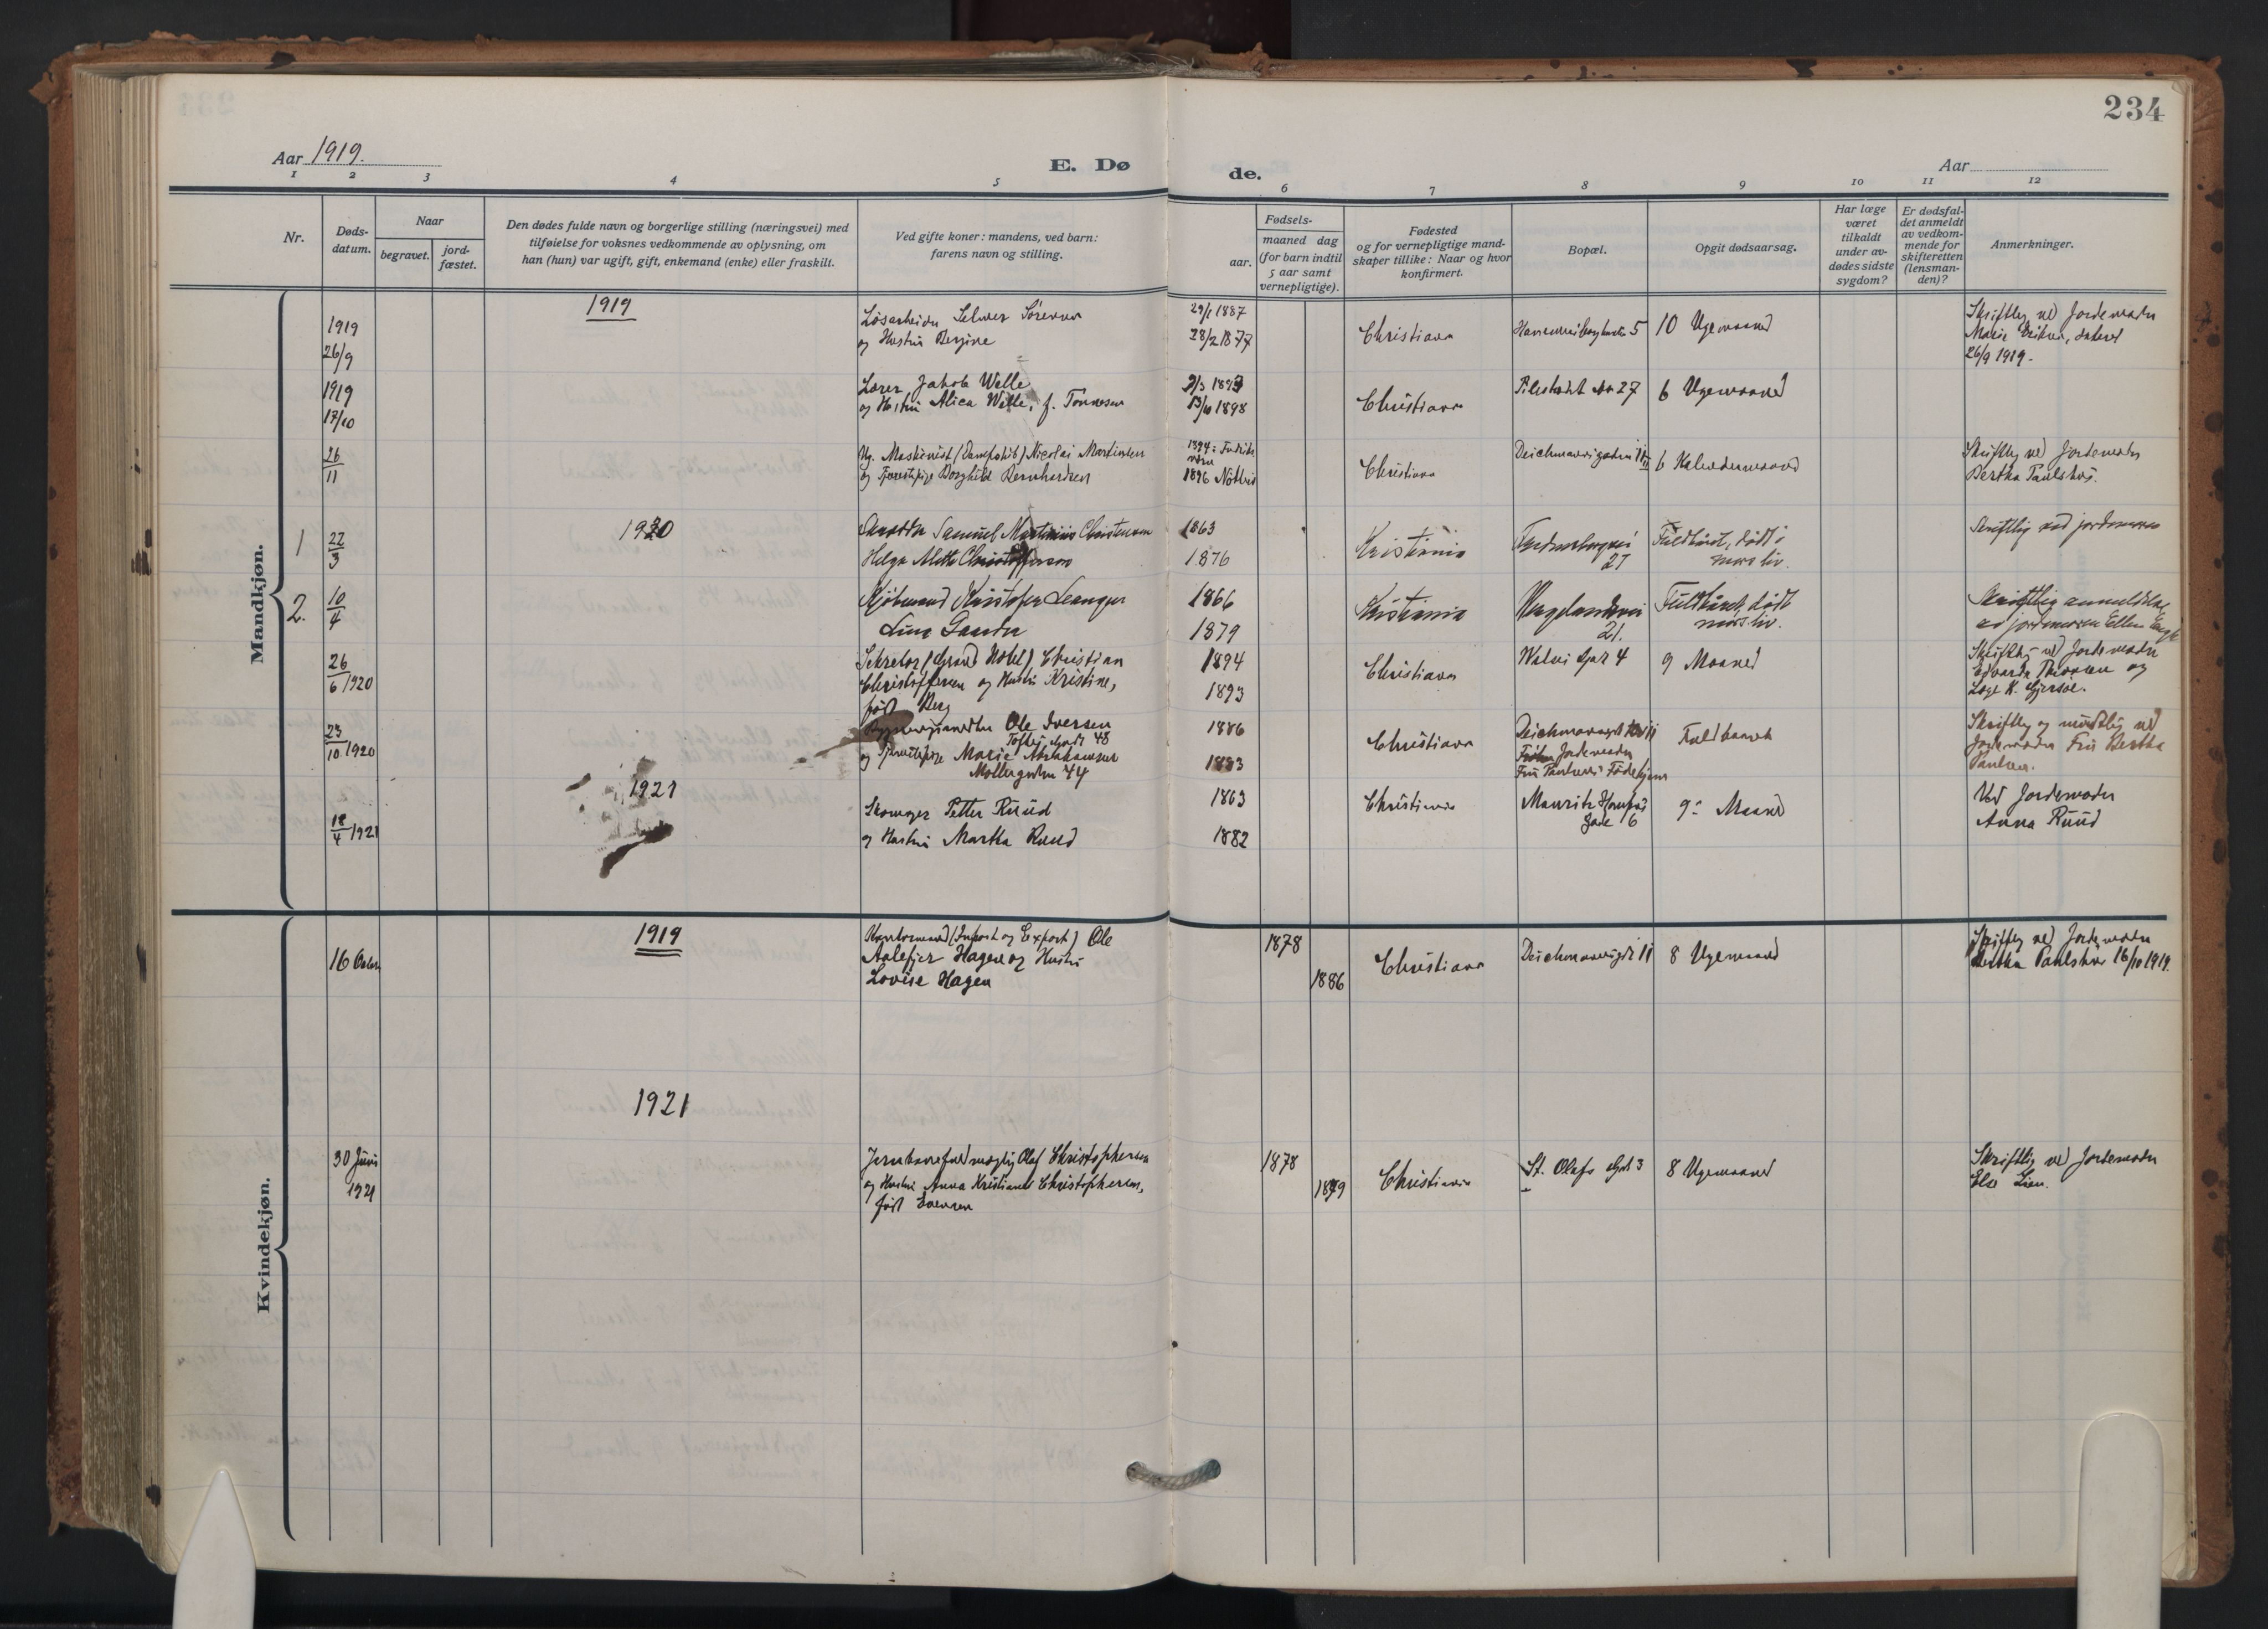 234
Aar 1919.
E. Døde.
Aar
1 2 3 4 5 6 7 8 9 10 11 12
Nr.
Døds-
datum.
Naar
begravet.
jord-
fæstet.
Den dødes fulde navn og borgerlige stilling (næringsvei) med
tilføielse for voksnes vedkommende av oplysning, om
han (hun) var ugift, gift, enkemand (enke) eller fraskilt.
Ved gifte koner: mandens, ved barn:
farens navn og stilling.
Fødsels-
aar.
maaned dag
(for barn indtil
5 aar samt
vernepligtige).
Fødested
og for vernepligtige mand-
skaper tillike: Naar og hvor
konfirmert.
Bopæl.
Opgit dødsaarsag.
Har læge
været
tilkaldt
under av-
dødes sidste
sygdom?
Er dødsfal-
det anmeldt
av vedkom-
mende for
skifteretten
(lensman-
den)?
Anmerkninger.
Mandkjøn.
1919
1919
26/9
Løsarbeider Selmer Sørensen
og Hustru Bergine
29/1 1887
28/2 1877
Christiania
5
10 Ugemaaned
Skriftlig ved Jordemoder
Marie Eriksen, dateret
26/9 1919.
1919
17/10
Lærer Jakob Welle
og Hustru Alica Welle, f. Tønnesen
1898
Christiania
Pilestrædet No 27
6 Ugemaaned
26
11
Ug. Maskinist (Dampskib) Nicolai Martinsen
og Tjenestepige Borghild Bernhardsen
1894: Fredriks
1896
Christiania
Deichmansgaden 11
6 Kalendermaaned
Skriftlig ved Jordemoder
Bertha Paulshus.
1920
1
22
3
Samuel Martinius Christensen
Helga Mette Christoffersen
1863
1876
Kristiania
27
Fuldbåret, død i
mors liv.
Skriftlig ved jordmoren
2.
10
4
Kjøbmand Kristofer Leangen
1866
1879
Kristiania
21.
Fuldbåret, død i
mors liv.
Skriftlig anmeldelse
ved jordmoren Ellen
26
6 1920
Sekretær (Grand Hotel) Christian
Christoffersen og Hustru Kristine,
født Berg
1894
1893
Christiania
4
9 Maaned
Skriftlig ved Jordemoder
Edvarda Thorsen og
Læge K. Gjersøe.
23
10 1920
Ole Iversen
Tofte Gade 48
og Tjenestepige Marie Abrahamsen
Møllergaden 44
1886
1883
Christiania
Deichmansgt 11
Jordemoder
Fru Paulsens Fødehjem
Fuldbaaret
Skriftlig og mundtlig ved
Jordemoder Fru Bertha
Paulsen.
1921
18
4 1921
Skomager Petter Ruud
og Hustru Martha Ruud
1863
1882
Christiania
Mauritz Hansens
Gade 6
9: Maaned
Ved Jordemoder
Anna Ruud
Kvindekjøn.
1919
16 October
(Import og Export) Ole
Hagen og Hustru
Lovise Hagen
1878
1886
Christiania
Deichmansgt 11
8 Ugemaaned
Skriftlig ved Jordemoder
Bertha Paulshus 16/10 1919.
1921
30 Juni
1921
Jernbanefuldmægtig Olaf Christophersen
og Hustru Anna Kristiane Christophersen,
født Evensen
1878
1879
Christiania
St. Olafs Gad 3
8 Ugemaaned
Skriftlig ved Jordemoder
Else Lien.